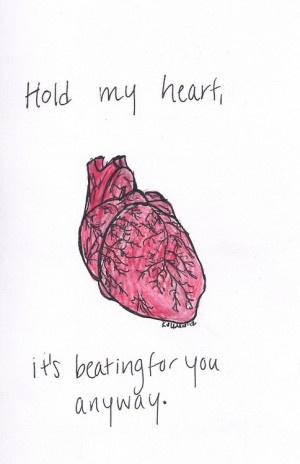 Hold my heart,
it's beating for you
anyway.